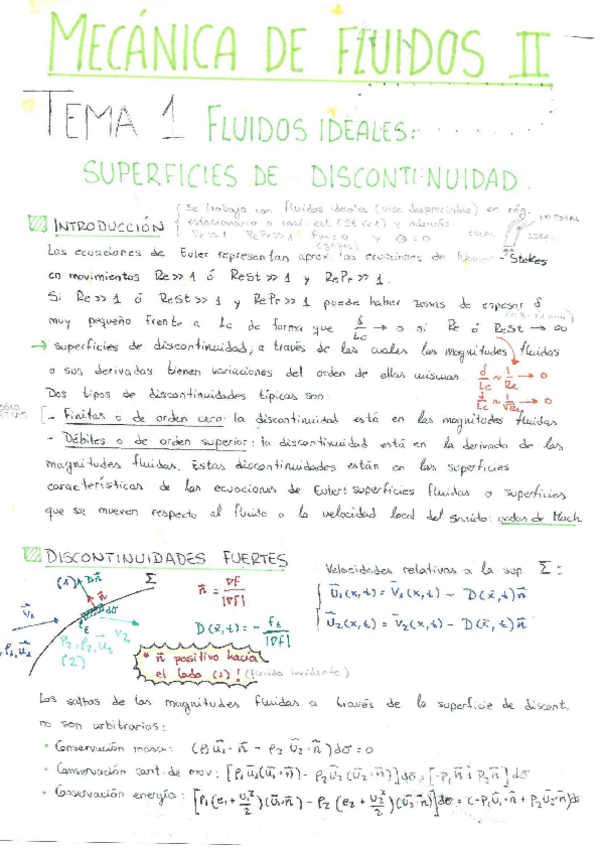 MECÁNICA DE FLUIDOS II
TEMA 1 FLUIDOS IDEALES:
SUPERFICIES DE DISCONTINUIDAD.
Se trabaja con fluidos ideales (visc despreciable) en rég.
estacionario o
INTRODUCCIÓN Re>>1 RePr>>1 y Q=0
Las ecuaciones de Euler representan aprox. las ecuaciones de Navier-Stokes
en movimientos Re>>1 ó ReSt>>1 y RePr>>1.
Si Re>>1 ó ReSt>>1 y RePr>>1 puede haber zonas de espesor δ
muy pequeño frente a Lc de forma que δ/Lc → 0 si Re ó ReSt → ∞
→ superficies de discontinuidad, a través de las cuales las magnitudes fluidas
o sus derivadas tienen variaciones del orden de ellas mismas. δ/Lc ~ 1/Re → 0
Dos tipos de discontinuidades típicas son: δ/Lc ~ 1/√Re → 0
- Finitas o de orden cero: la discontinuidad está en las magnitudes fluidas
- Débiles o de orden superior: la discontinuidad está en la derivada de las
magnitudes fluidas. Estas discontinuidades están en las superficies
características de las ecuaciones de Euler: superficies fluidas o superficies
que se mueven respecto al fluido a la velocidad local del sonido: ondas de Mach
DISCONTINUIDADES FUERTES
Velocidades relativas a la sup. Σ:
(1) Dn̄ n̄ Σ dσ
n̄ = ∇F/|∇F|
Ū₁(x,t) = V̄₁(x,t) - D(x̄,t)n̄
V̄₁ V₂
D(x̄,t) = - ft/|∇F|
Ū₂(x,t) = V̄₂(x,t) - D(x̄,t)n̄
P₁, ρ₁, ū₁
P₂, ρ₂, ū₂
(2)
* n̄ positivo hacia
el lado (1)! (fluido incidente)
Los saltos de las magnitudes fluidas a través de la superficie de discont.
no son arbitrarios:
• Conservación masa: (ρ₁ū₁·n̄ - ρ₂ū₂·n̄)dσ = 0
• Conservación cant. de mov: [ρ₁ū₁(ū₁·n̄) - ρ₂ū₂(ū₂·n̄)]dσ = [-p₁n̄ + p₂n̄]dσ
• Conservación energía: [ρ₁(e₁+u₁²/2)(ū₁·n̄) - ρ₂(e₂+u₂²/2)(ū₂·n̄)]dσ = (-p₁ū₁·n̄ + p₂ū₂·n̄)dσ